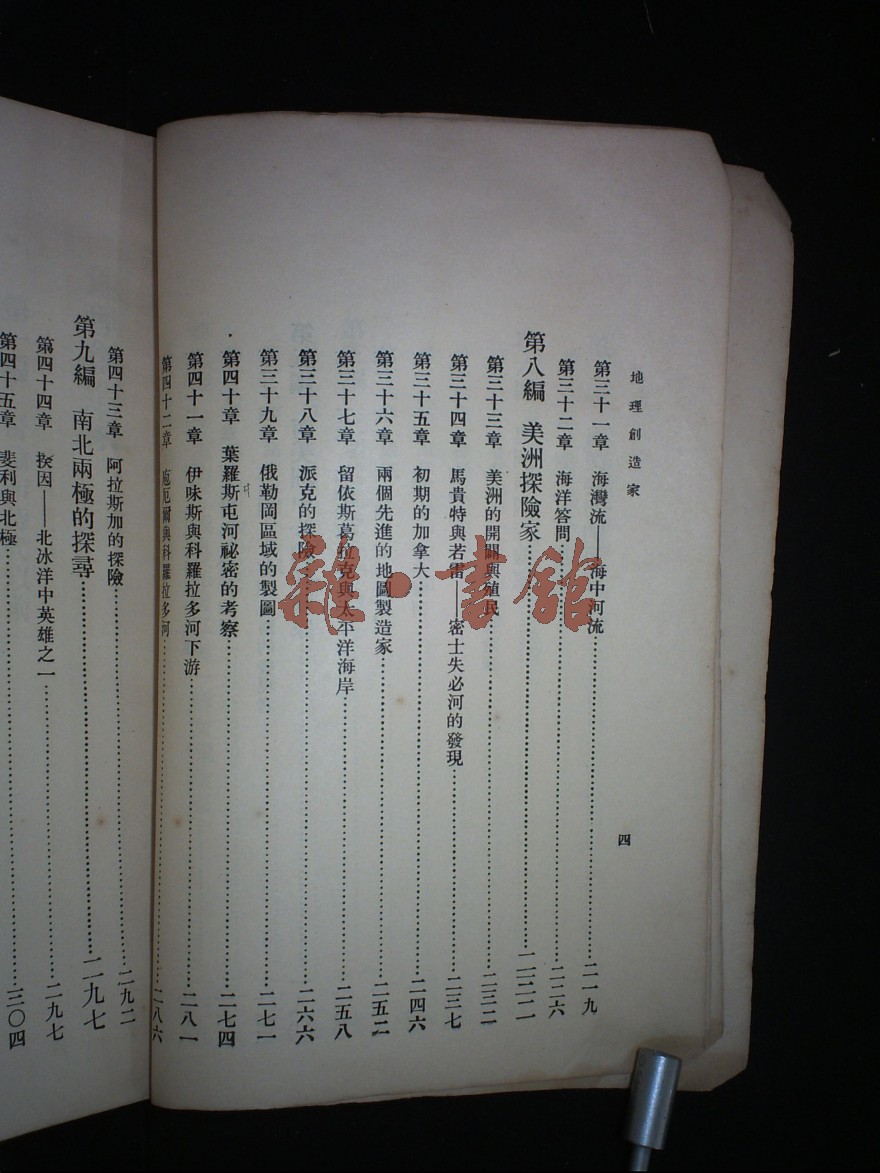 地理創造家
四
第三十一章 海灣流——海中河流……二一九
第三十二章 海洋答問……二二六
第八編 美洲探險家……二三二
第三十三章 美洲的開闢與殖民……二三二
第三十四章 馬貴特與若雷 密士失必河的發現……二三七
第三十五章 初期的加拿大……二四六
第三十六章 兩個先進的地圖製造家……二五二
第三十七章 留依斯葛拉克與太平洋海岸……二五八
第三十八章 派克的探險……二六六
第三十九章 俄勒岡區域的製圖……二七一
第四十章 葉羅斯屯河祕密的考察……二七四
第四十一章 伊味斯與科羅拉多河下游……二八一
第四十二章 厄爾與科羅拉多河……二八六
第四十三章 阿拉斯加的探險……二九二
第九編 南北兩極的探尋……二九七
第四十四章 因——北冰洋中英雄之一……二九七
第四十五章 斐利與北極……三〇四
雜·書館